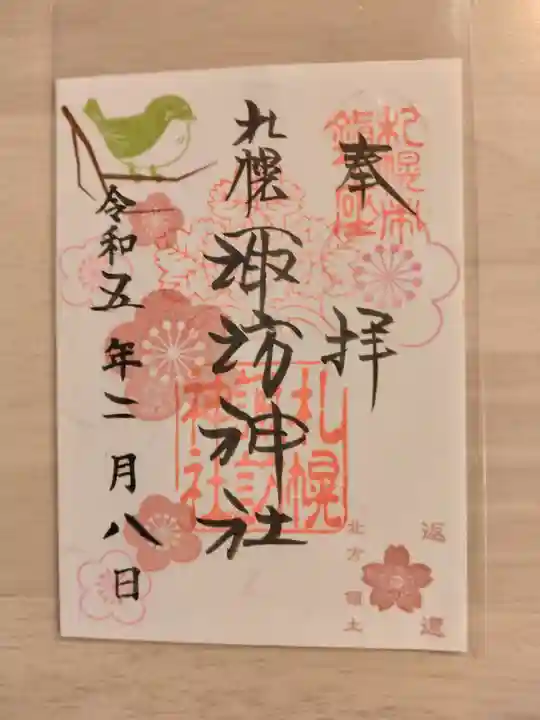 奉拝
札幌市
札幌
諏訪神社
札幌
諏訪
神社
令和五年二月八日
返還
北方領土